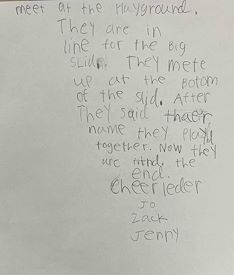 meet at the Playground.
They are in
line for the Big
Slide. They mete
up at the Botom
of the slid. After
They said thaer
name they Play
together. Now they
are the
end.
Cheerleder
Jo
Zack
Jenny